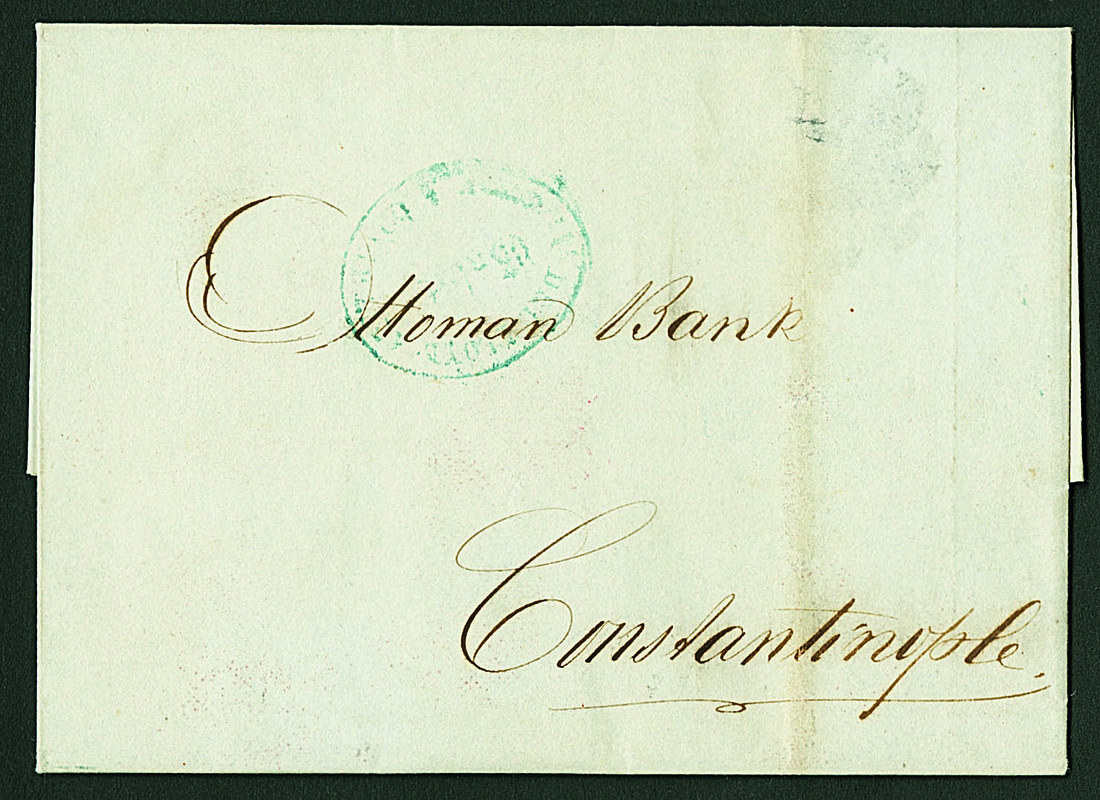 Ottoman Bank
Constantinople.